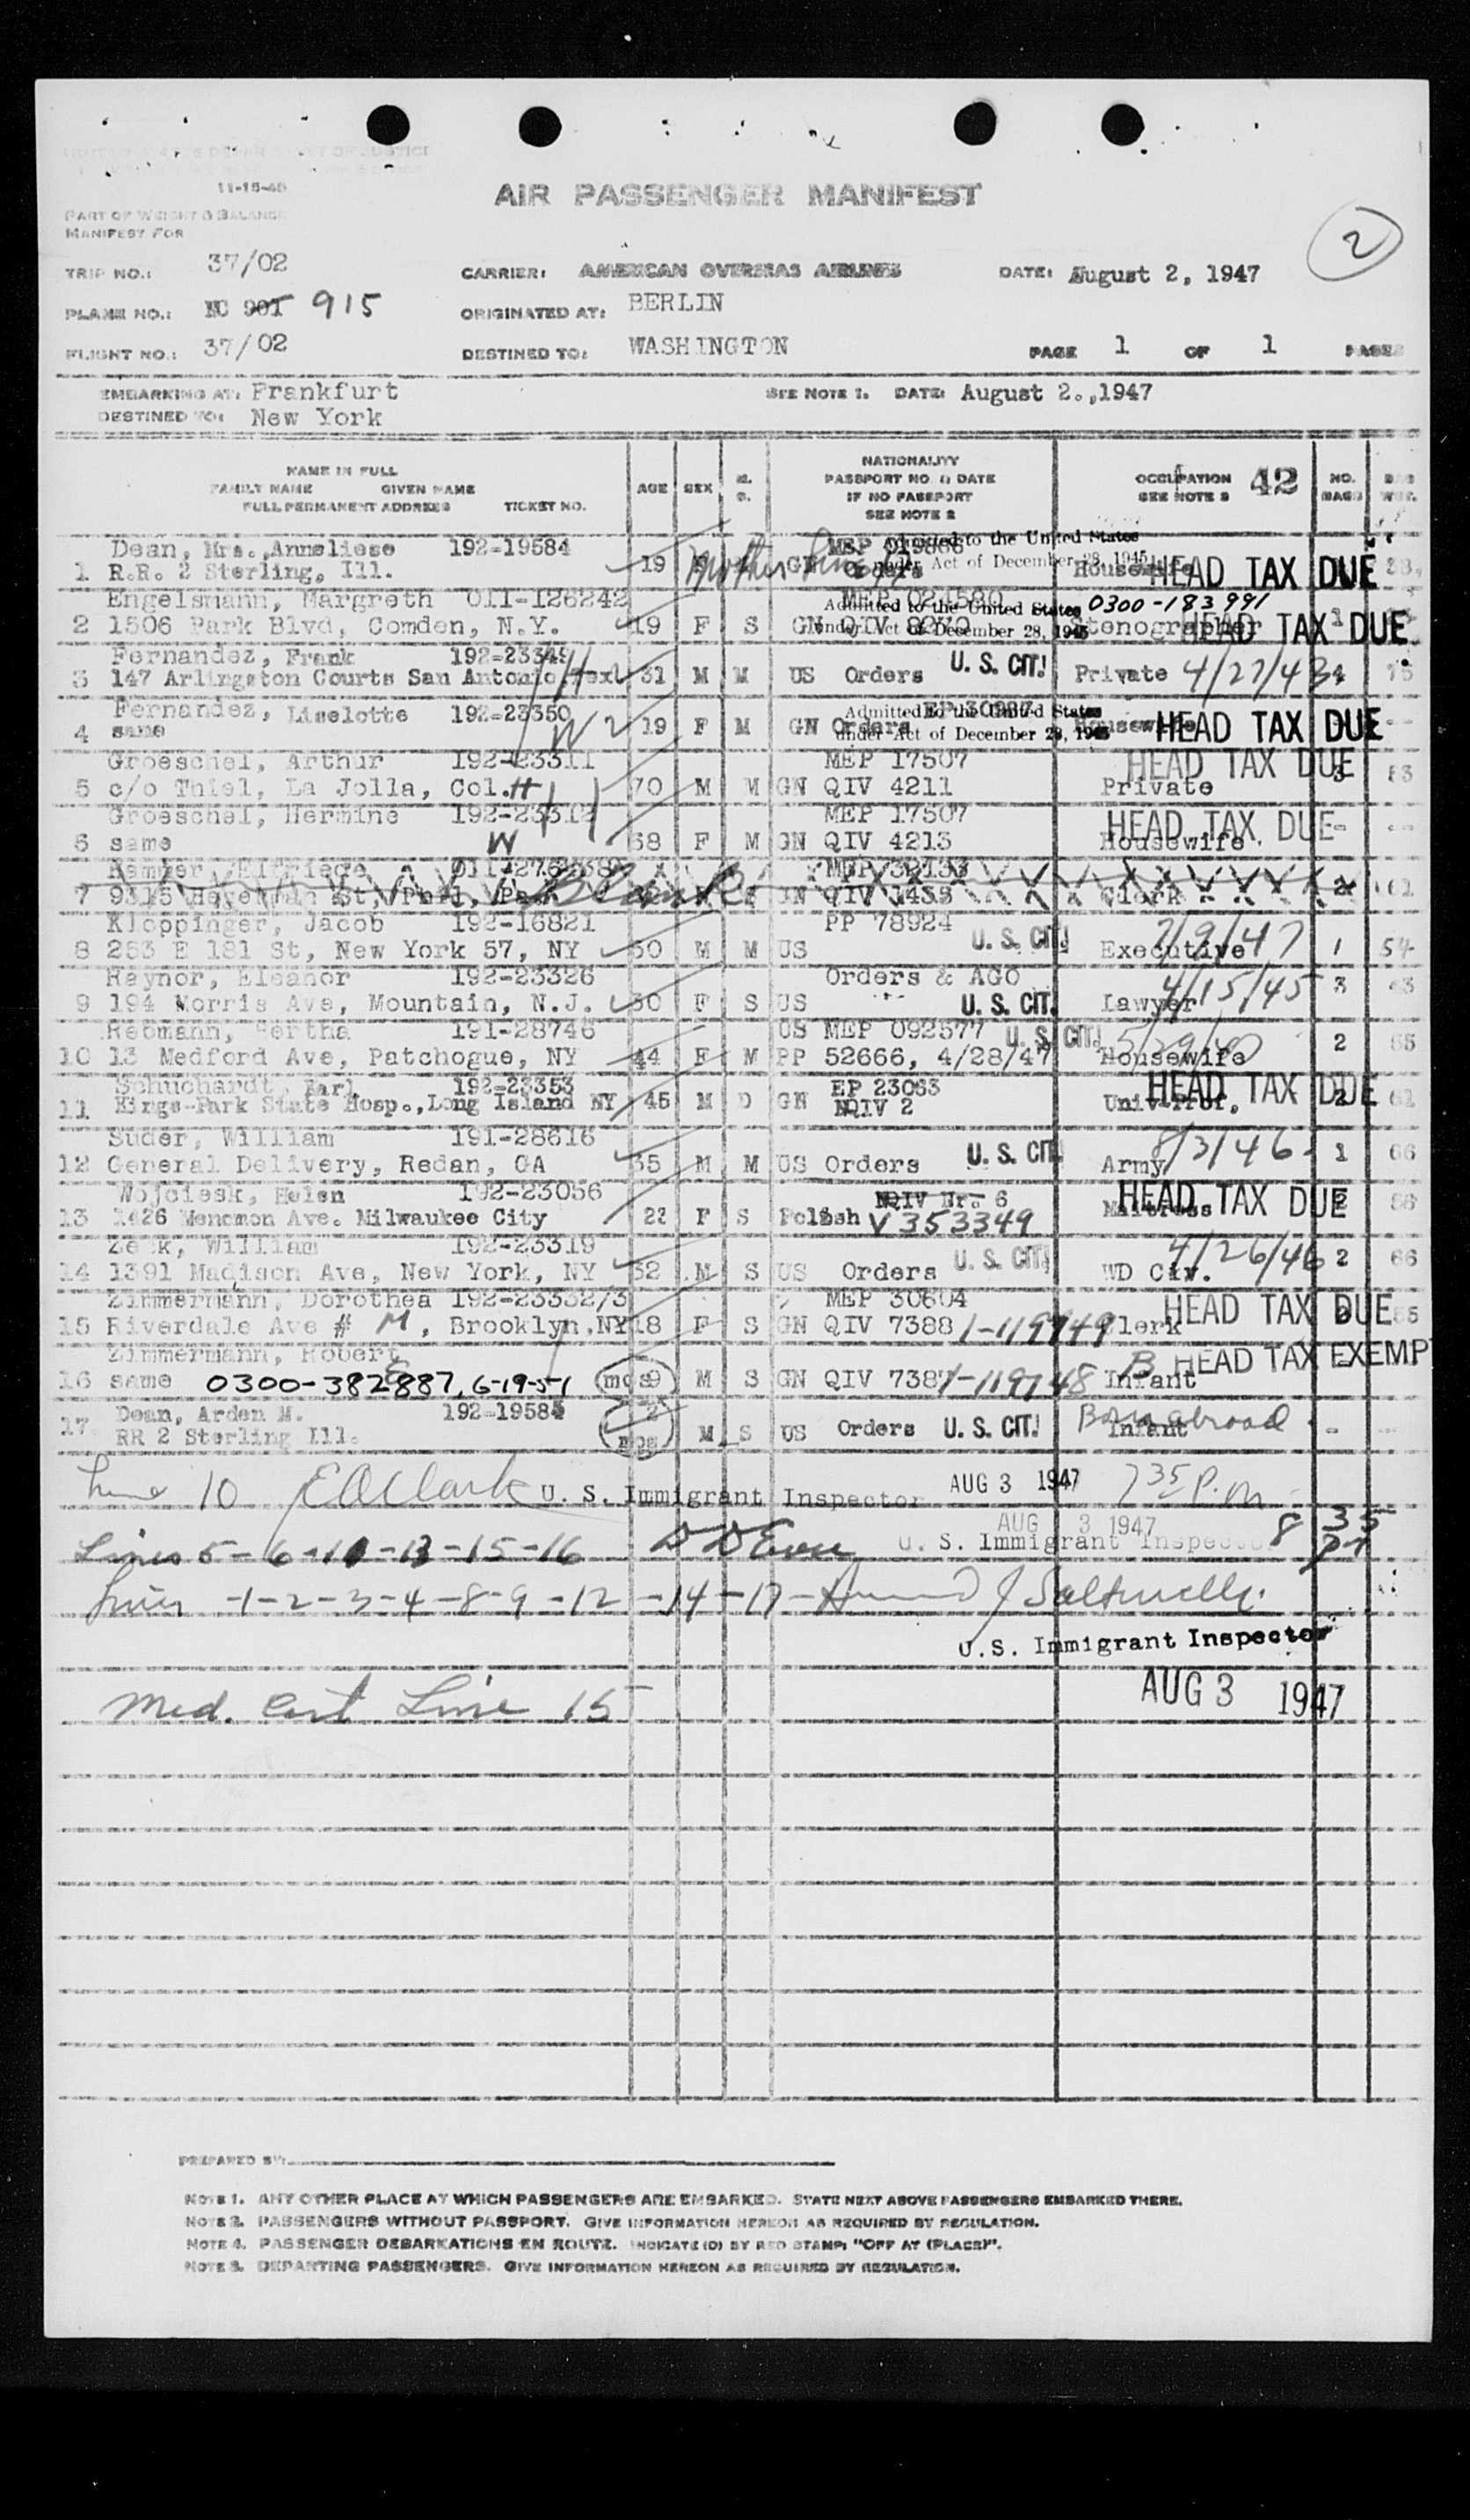 11-15-46
AIR PASSENGER MANIFEST
PART OF WEIGHT & BALANCE
MANIFEST FOR
2
TRIP NO.: 37/02 CARRIER: AMERICAN OVERSEAS AIRLINES DATE: August 2, 1947
PLANE NO.: NC 901 915 ORIGINATED AT: BERLIN
FLIGHT NO.: 37/02 DESTINED TO: WASHINGTON PAGE 1 OF 1 PAGES
EMBARKING AT: Frankfurt SEE NOTE 1. DATE: August 2.,1947
DESTINED TO: New York
NAME IN FULL
FAMILY NAME GIVEN NAME
FULL PERMANENT ADDRESS TICKET NO.
AGE SEX M. S.
NATIONALITY
PASSPORT NO. & DATE
IF NO PASSPORT
SEE NOTE 2
OCCUPATION 42
SEE NOTE 3
NO. BAGS
Dean, Mrs., Anneliese 192-19584 Admitted to the United States
1 R.R. 2 Sterling, Ill. 19 F Mother line 17 Orders under Act of December 28, 1945 Housewife HEAD TAX DUE
Engelsmann, Margreth 011-126242 MEP 024580 0300-183991
Admitted to the United States
2 1506 Park Blvd, Comden, N.Y. 19 F S GN QIV under Act of December 28, 1945 Stenographer HEAD TAX DUE 1
Fernandez, Frank 192-23349
3 147 Arlingston Courts San Antonio, Tex H 2 31 M M US Orders U. S. CIT! Private 4/27/43
Fernandez, Liselotte 192-23350 Admitted to the United States
4 same W 2 19 F M GN Orders under Act of December 28, 1945 Housewife HEAD TAX DUE
Groeschel, Arthur 192-23311 MEP 17507 HEAD TAX DUE
5 c/o Thiel, La Jolla, Col. H 70 M M GN QIV 4211 Private 83
Groeschel, Hermine 192-23312 MEP 17507 HEAD TAX DUE
6 same W 68 F M GN QIV 4213 Housewife
Elfriede MEP 32133
7 9315 St, Phil, Pa. QIV 1433 Clerk 2 61
Kloppinger, Jacob 192-16821 PP 78924
8 253 E 181 St, New York 57, NY 50 M M US U. S. CIT! Executive 7/9/47 1 54
Raynor, Eleanor 192-23326 Orders & AGO
9 194 Morris Ave, Mountain, N.J. 30 F S US U. S. CIT. Lawyer 4/15/45 3 43
Rebmann, Bertha 191-28746 US MEP 092577 U. S. CIT!
10 13 Medford Ave, Patchogue, NY 44 F M PP 52666, 4/28/47 Housewife 2
Schuchardt, Karl 192-23353 EP 23063 HEAD TAX DUE
11 Kings-Park State Hosp., Long Island NY 45 M D GN NQIV 2 Univ-Prof, 2 61
Suder, William 191-28616
12 General Delivery, Redan, GA 35 M M US Orders U. S. CIT. Army 8/3/46 1 66
Wojciesk, Helen 192-23056 NQIV Nr. 6 HEAD TAX DUE
13 1426 Menomon Ave. Milwaukee City 22 F S Polish V 353349 2
Zeck, William 192-23319
14 1391 Madison Ave, New York, NY 32 M S US Orders U. S. CIT! WD Civ. 4/26/46 2 66
Zimmermann, Dorothea 192-23332/3 MEP 30604 HEAD TAX DUE
15 Riverdale Ave # M, Brooklyn, NY 18 F S GN QIV 7388 1-119749 Clerk
Zimmermann, Robert HEAD TAX EXEMP
16 same 0300-382887, 6-19-51 mos 9 M S GN QIV 7387 1-119748 Infant
Dean, Arden M. 192-19585
17 RR 2 Sterling Ill. 2 mos M S US Orders U. S. CIT! Infant Born abroad
Line 10 E A Clark U. S. Immigrant Inspector AUG 3 1947 7 35 P.m
AUG 3 1947
Lines 5-6-11-13-15-16 U. S. Immigrant Inspector 8 35
Lines -1-2-3-4-8-9-12-14-17-
U.S. Immigrant Inspector
AUG 3 1947
Med. Cert Line 15
PREPARED BY:
NOTE 1. ANY OTHER PLACE AT WHICH PASSENGERS ARE EMBARKED. STATE NEXT ABOVE PASSENGERS EMBARKED THERE.
NOTE 2. PASSENGERS WITHOUT PASSPORT. GIVE INFORMATION HEREON AS REQUIRED BY REGULATION.
NOTE 4. PASSENGER DEBARKATIONS EN ROUTE. INDICATE (D) BY RED STAMP: "OFF AT (PLACE)".
NOTE 3. DEPARTING PASSENGERS. GIVE INFORMATION HEREON AS REQUIRED BY REGULATION.